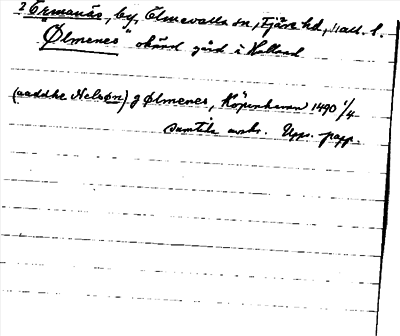 2 Ermanäs, by, Ölmevalla sn, Fjäre hd, Hall. l.
"Ølmenes" okänd gård i Halland
(aaddhe Nelsøn) j Ølmenes, Köpenhamn 1490 1/4
samtida avskr. Upps. papp.